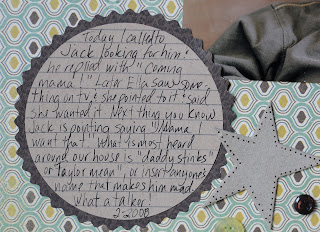 Today I called to
Jack looking for him &
he replied with "Coming
mama!" Later Ella saw some-
thing on tv, & She pointed to it & said
She wanted it. Next thing you know
Jack is pointing saying "Mama I
want that" What is most heard
around our house is "daddy stinks"
or Taylor mean", or insert anyones
name that makes him mad.
what a talker!
2-2008